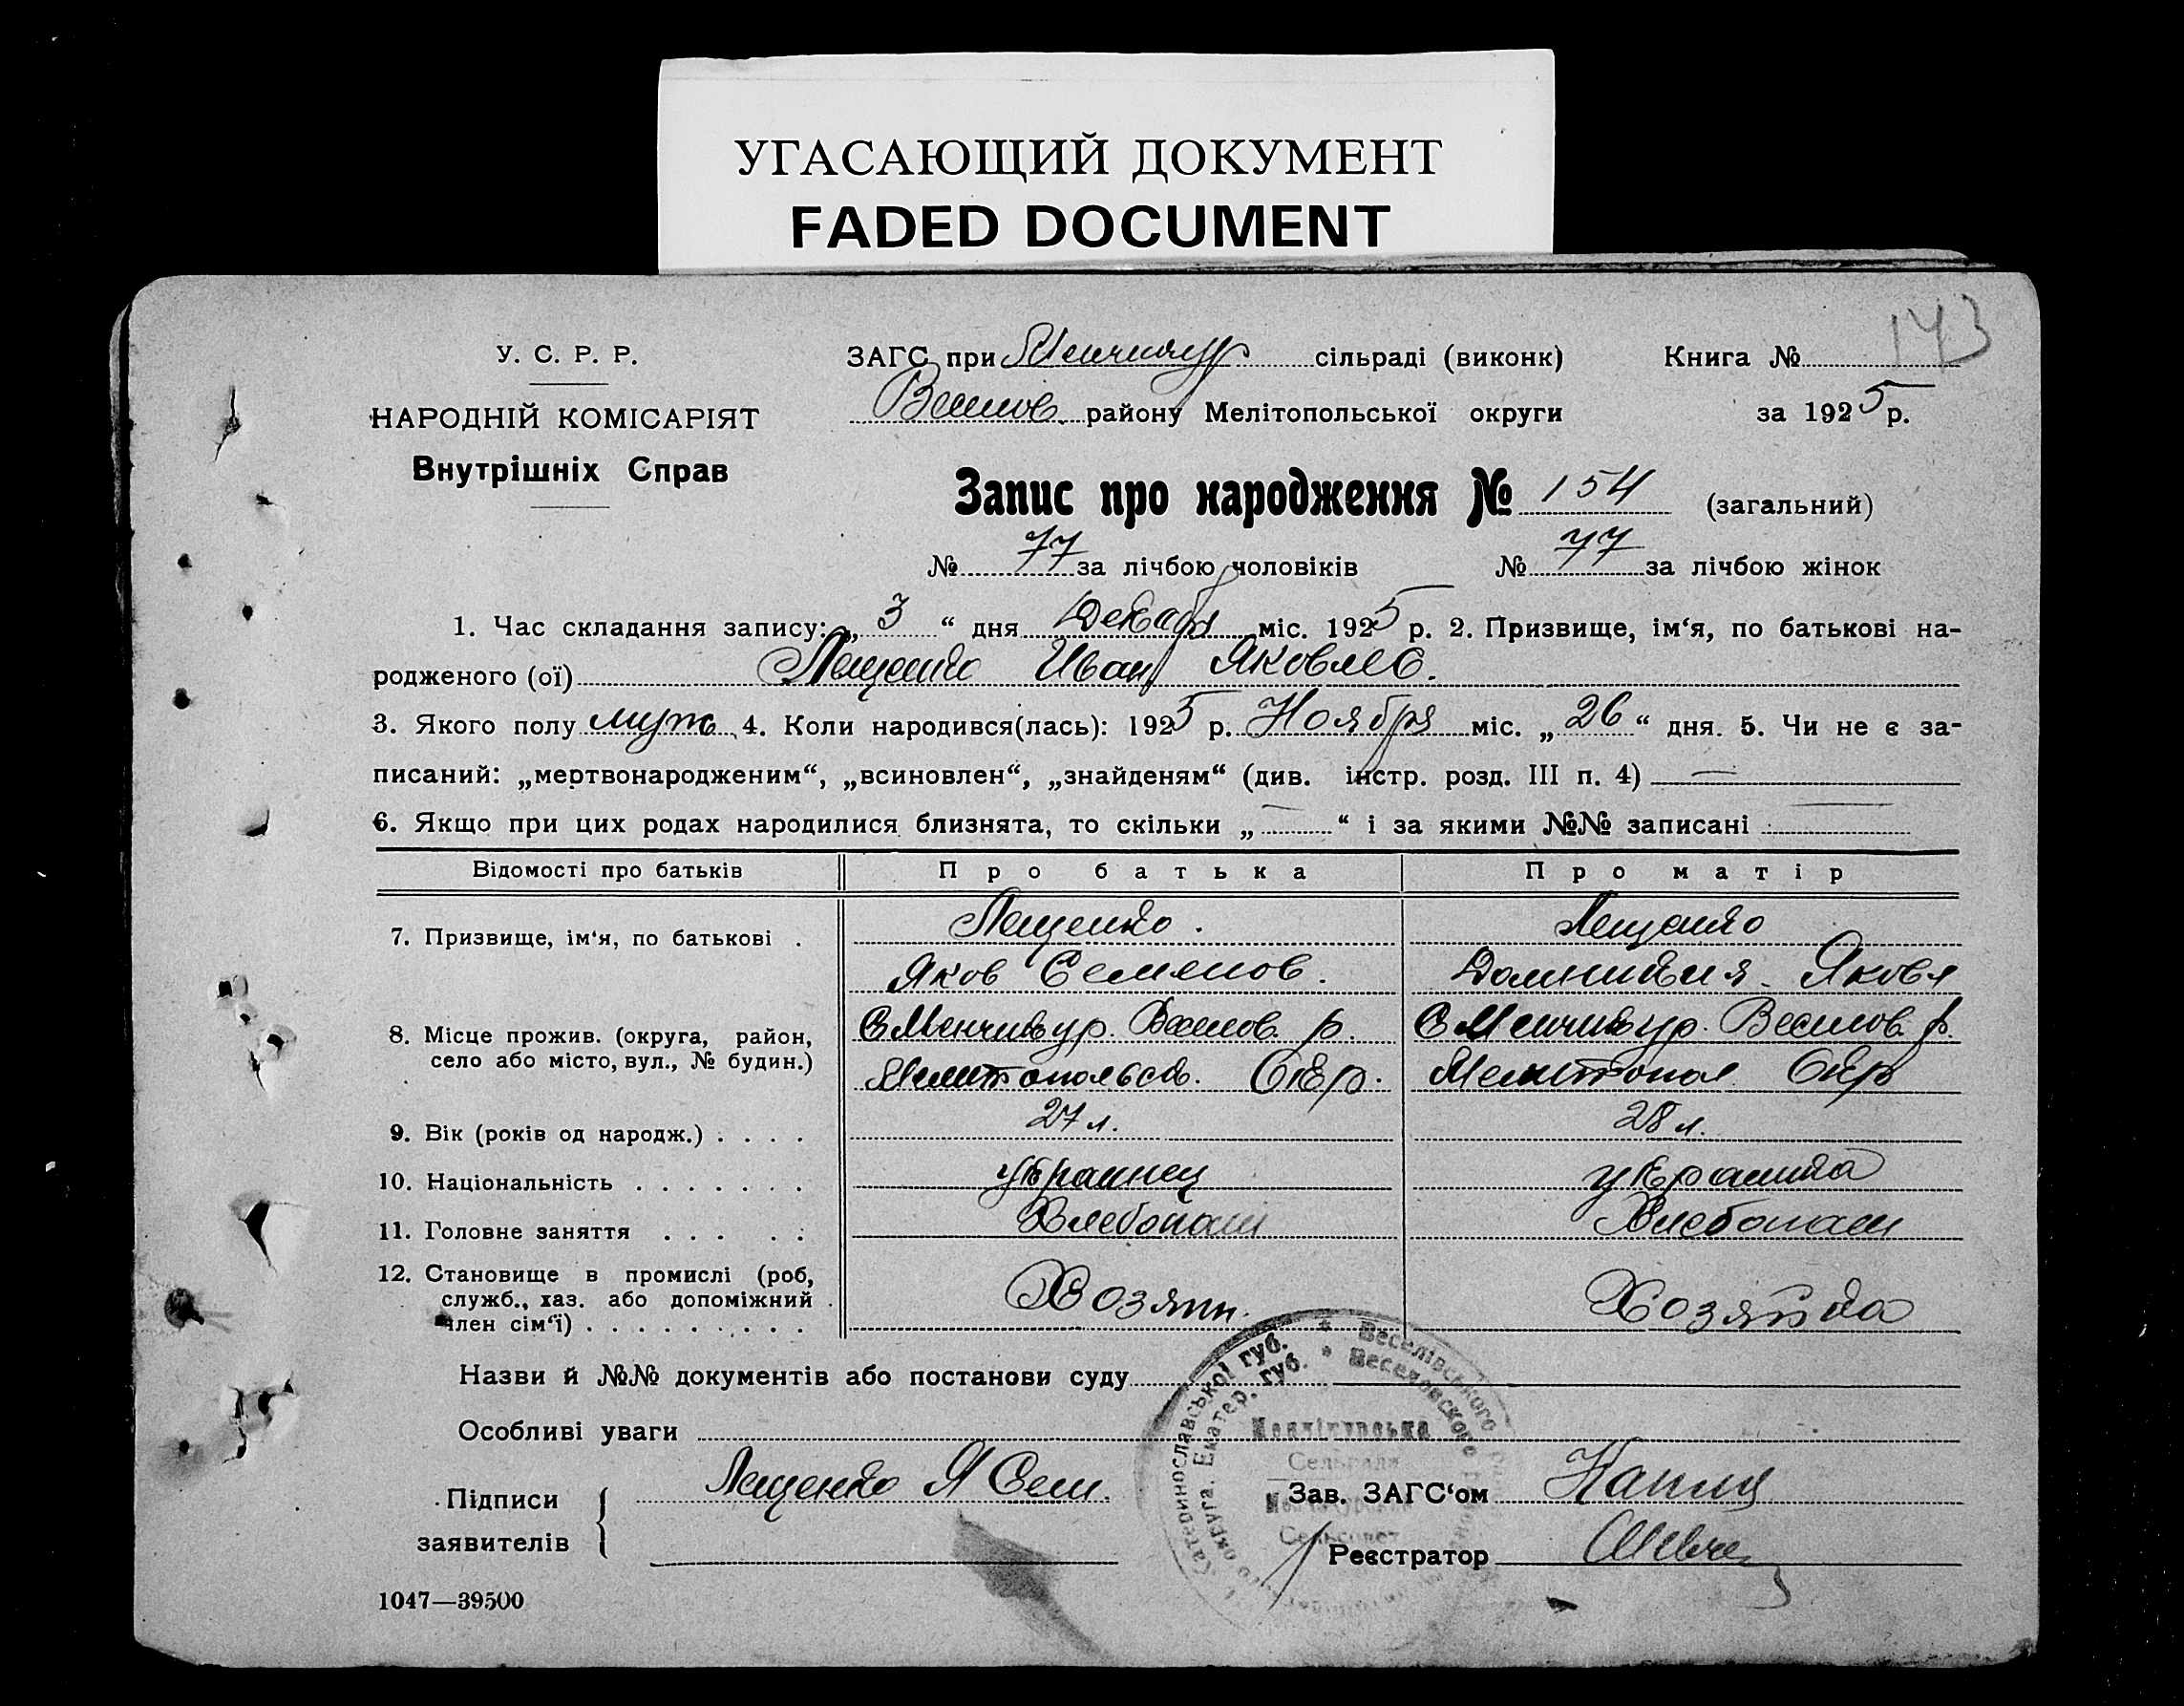 УГАСАЮЩИЙ ДОКУМЕНТ
FADED DOCUMENT
143
У. С. Р. Р.
НАРОДНІЙ КОМІСАРІЯТ
Внутрішніх Справ
ЗАГС при Менчикур сільраді (виконк)
Книга №
Веселов. району Мелітопольської округи
за 1925 р.
Запис про народження № 154 (загальний)
№ 77 за лічбою чоловіків № 77 за лічбою жінок
1. Час складання запису: „ 3 “ дня Декабря міс. 1925 р. 2. Призвище, ім‘я, по батькові на-
родженого (ої) Лещенко Иван Яковлев.
3. Якого полу муж 4. Коли народився(лась): 1925 р. Ноября міс. „ 26 “ дня. 5. Чи не є за-
писаний: „мертвонародженим“, „всиновлен“, „знайденям“ (див. інстр. розд. III п. 4) —
6. Якщо при цих родах народилися близнята, то скільки „ — “ і за якими №№ записані —
Відомості про батьків Про батька Про матір
7. Призвище, ім‘я, по батькові . Лещенко. Лещенко
Яков Семенов. Домникия Яковл
8. Місце прожив. (округа, район, С Менчикур. Веселов. р. С Менчикур. Веселов. р.
село або місто, вул., № будин.) Мелитопольск. Окр. Мелитопол Окр
9. Вік (років од народж.) . . . . 27 л. 28 л.
10. Національність . . . . . . . украинец украинка
11. Головне заняття . . . . . Хлебопаш Хлебопаш
12. Становище в промислі (роб,
служб., хаз. або допоміжний Хозяин. Хозяйка
член сім‘ї) . . . . . . . . .
Назви й №№ документів або постанови суду
Особливі уваги
Катеринославської губ. * Веселівського
округа. Екатер. губ. * Веселовского
Менчікурська
Сельрада
Сельсовет
Підписи
заявителів
Лещенко Я Сем.
Зав. ЗАГС‘ом
Реєстратор
1047—39500